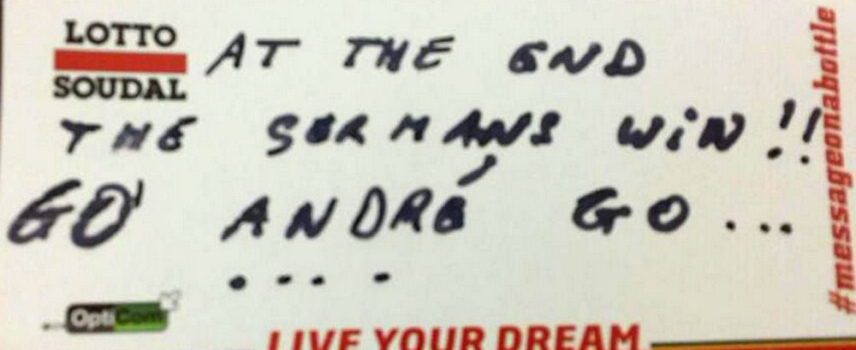 LOTTO
SOUDAL
AT THE END
THE GERMANS WIN!!
GO ANDRÉ GO...
....
OptiCom
LIVE YOUR DREAM
#messageonabottle